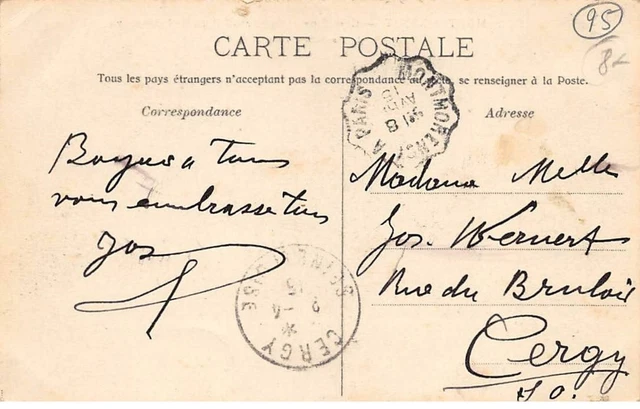 95
8-
CARTE POSTALE
Tous les pays étrangers n'acceptant pas la correspondance au recto, se renseigner à la Poste.
MONTMORENCY A PARIS
18
AVR
15
Correspondance
Adresse
à tous
vous embrasse tous
Jos
Madame Melle
Jos. Wernert
Rue du Brûloir
Cergy
S O.
SEINE-ET-OISE
CERGY
-4
15